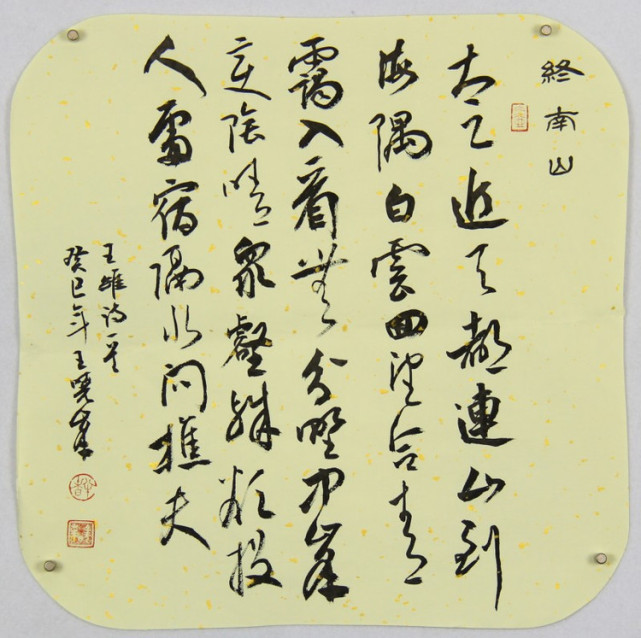 終南山
太乙近天都連山到
海隅白雲回望合青
靄入看無分野中峯
變陰晴眾壑殊欲投
人處宿隔水問樵夫
王維詩一首
癸巳年王曉峯